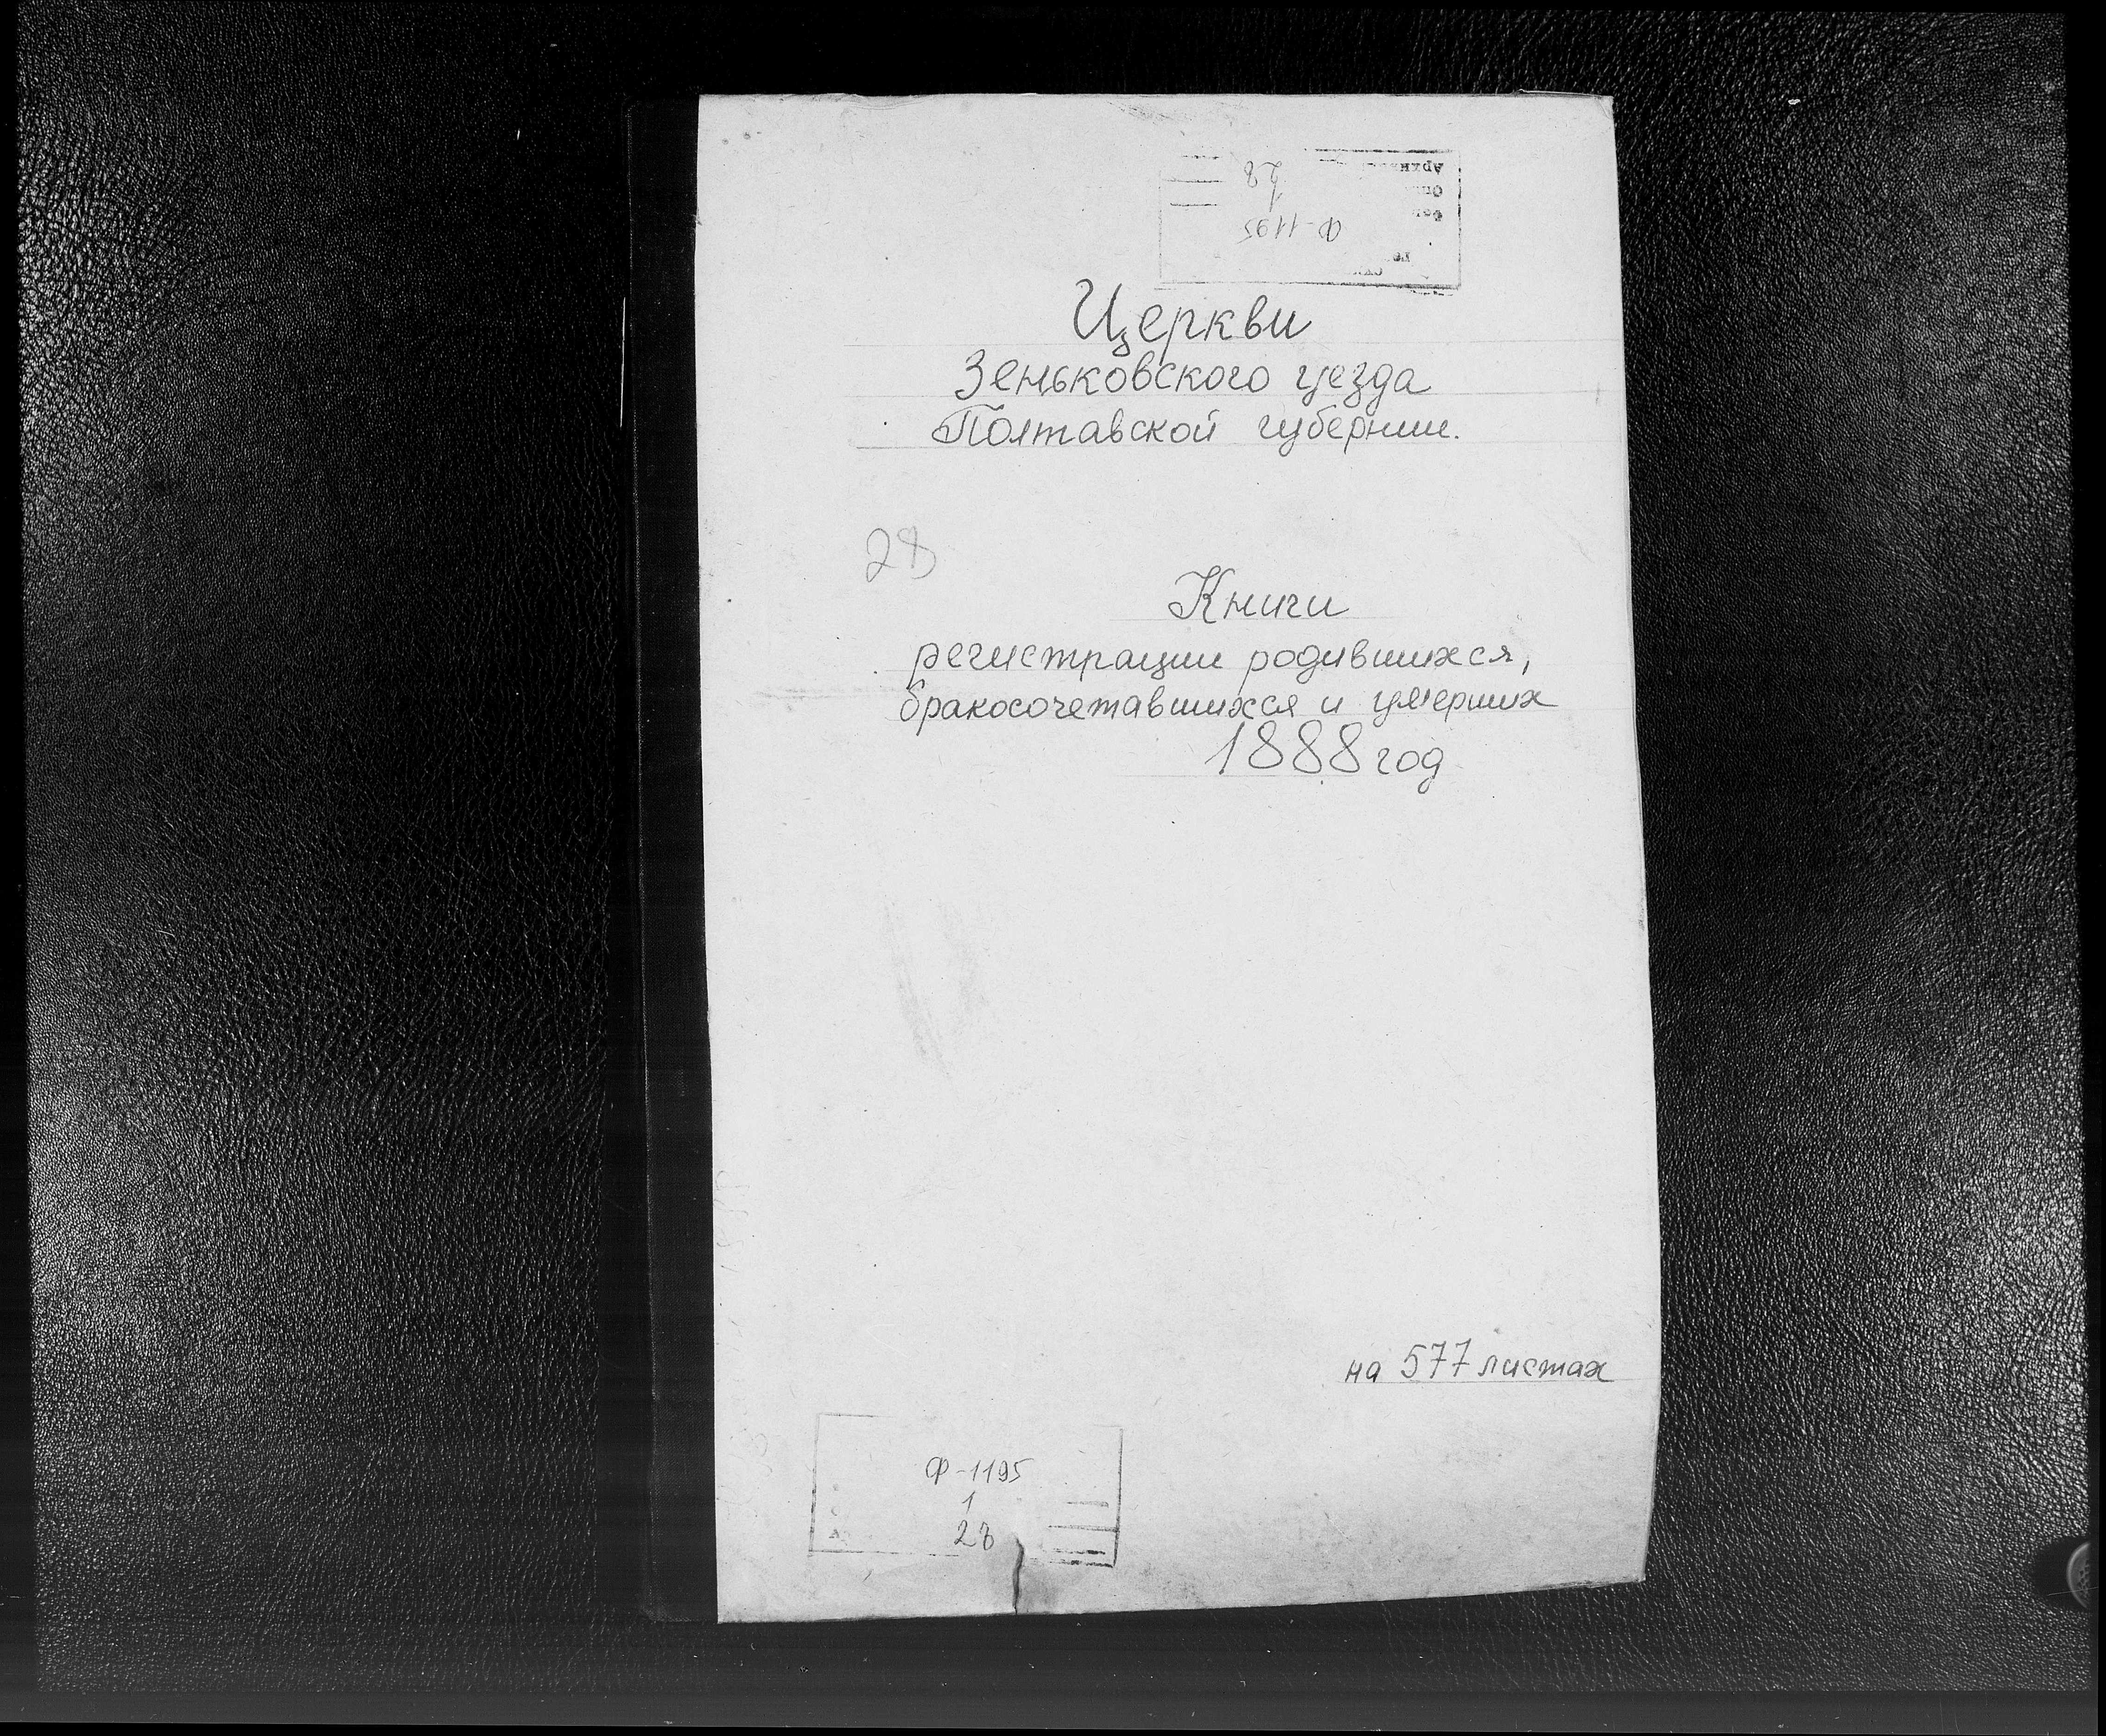 Ф-1195
1
28
Церкви
Зеньковского уезда
Полтавской губернии.
28
Книги
регистрации родившихся,
бракосочетавшихся и умерших
1888 год
на 577 листах
Ф-1195
1
28